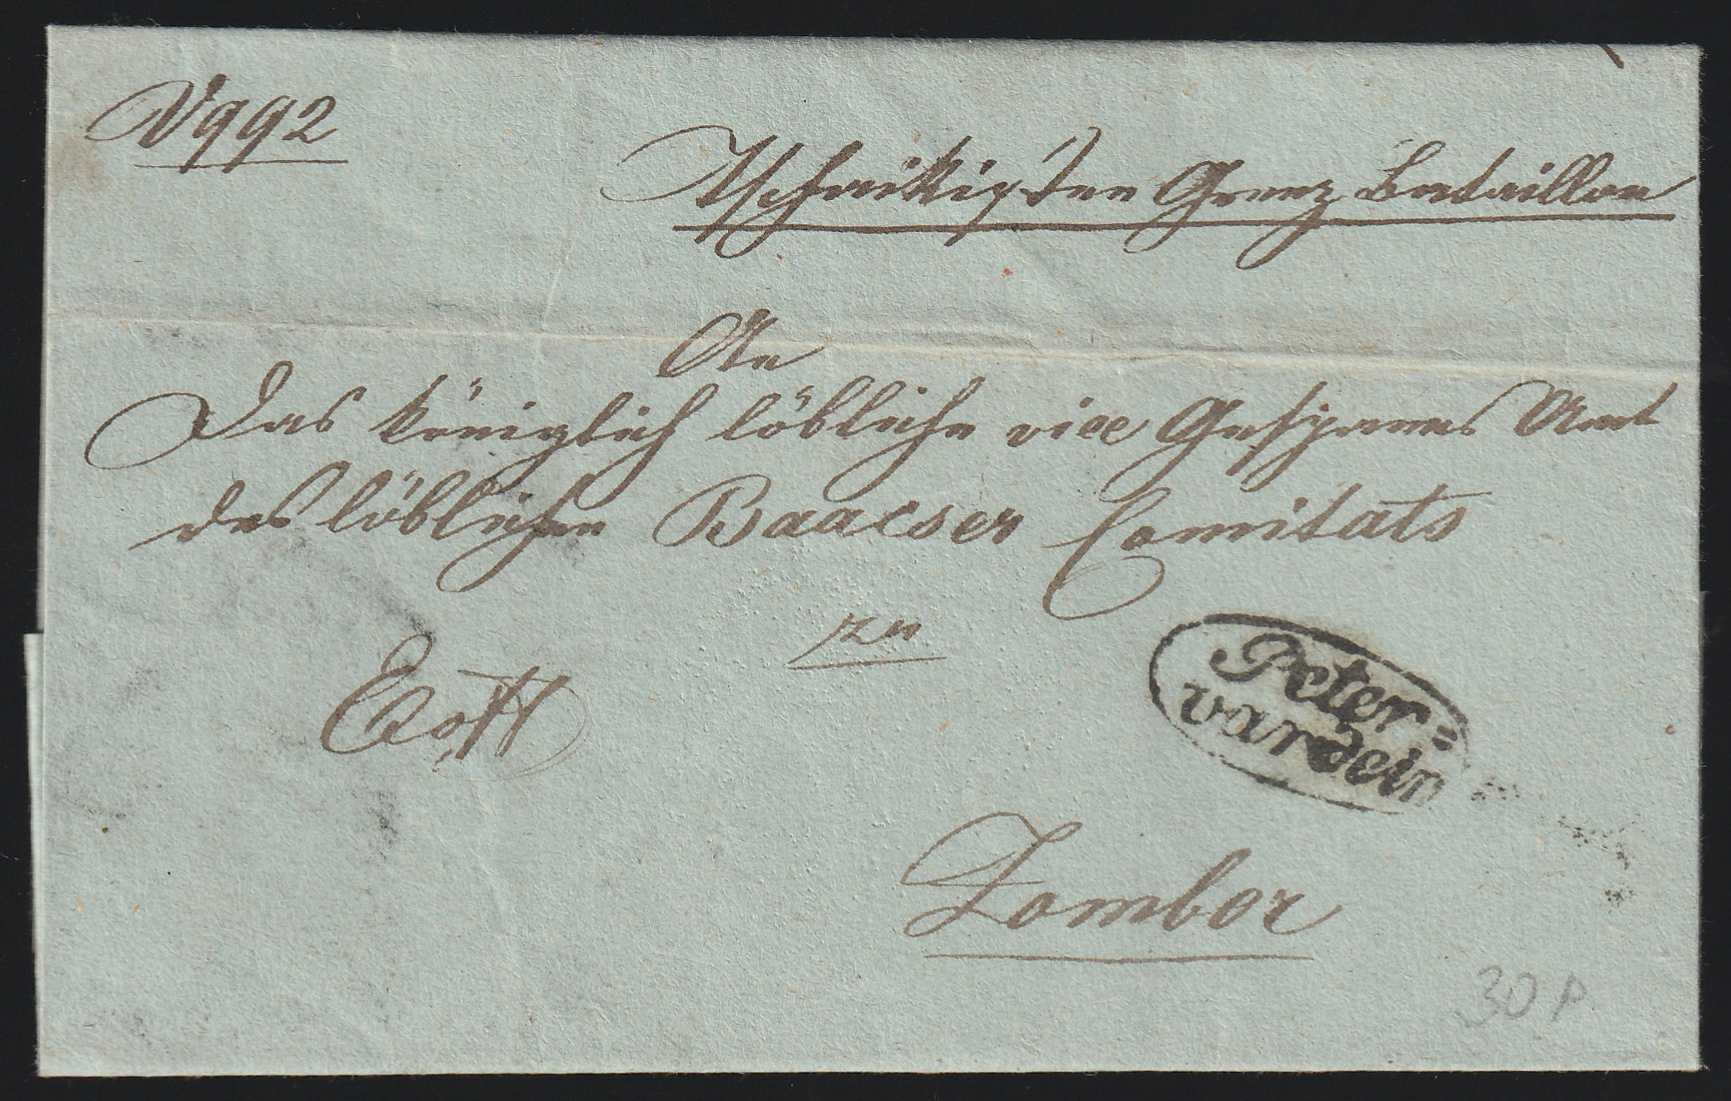 V992
Tschaikisten Grenz Bataillon
An
Das königlich löbliche vice Gespanns Amt
des löblichen Baacser Comitats
zu
Peter=
vardein
Zombor
30 P.